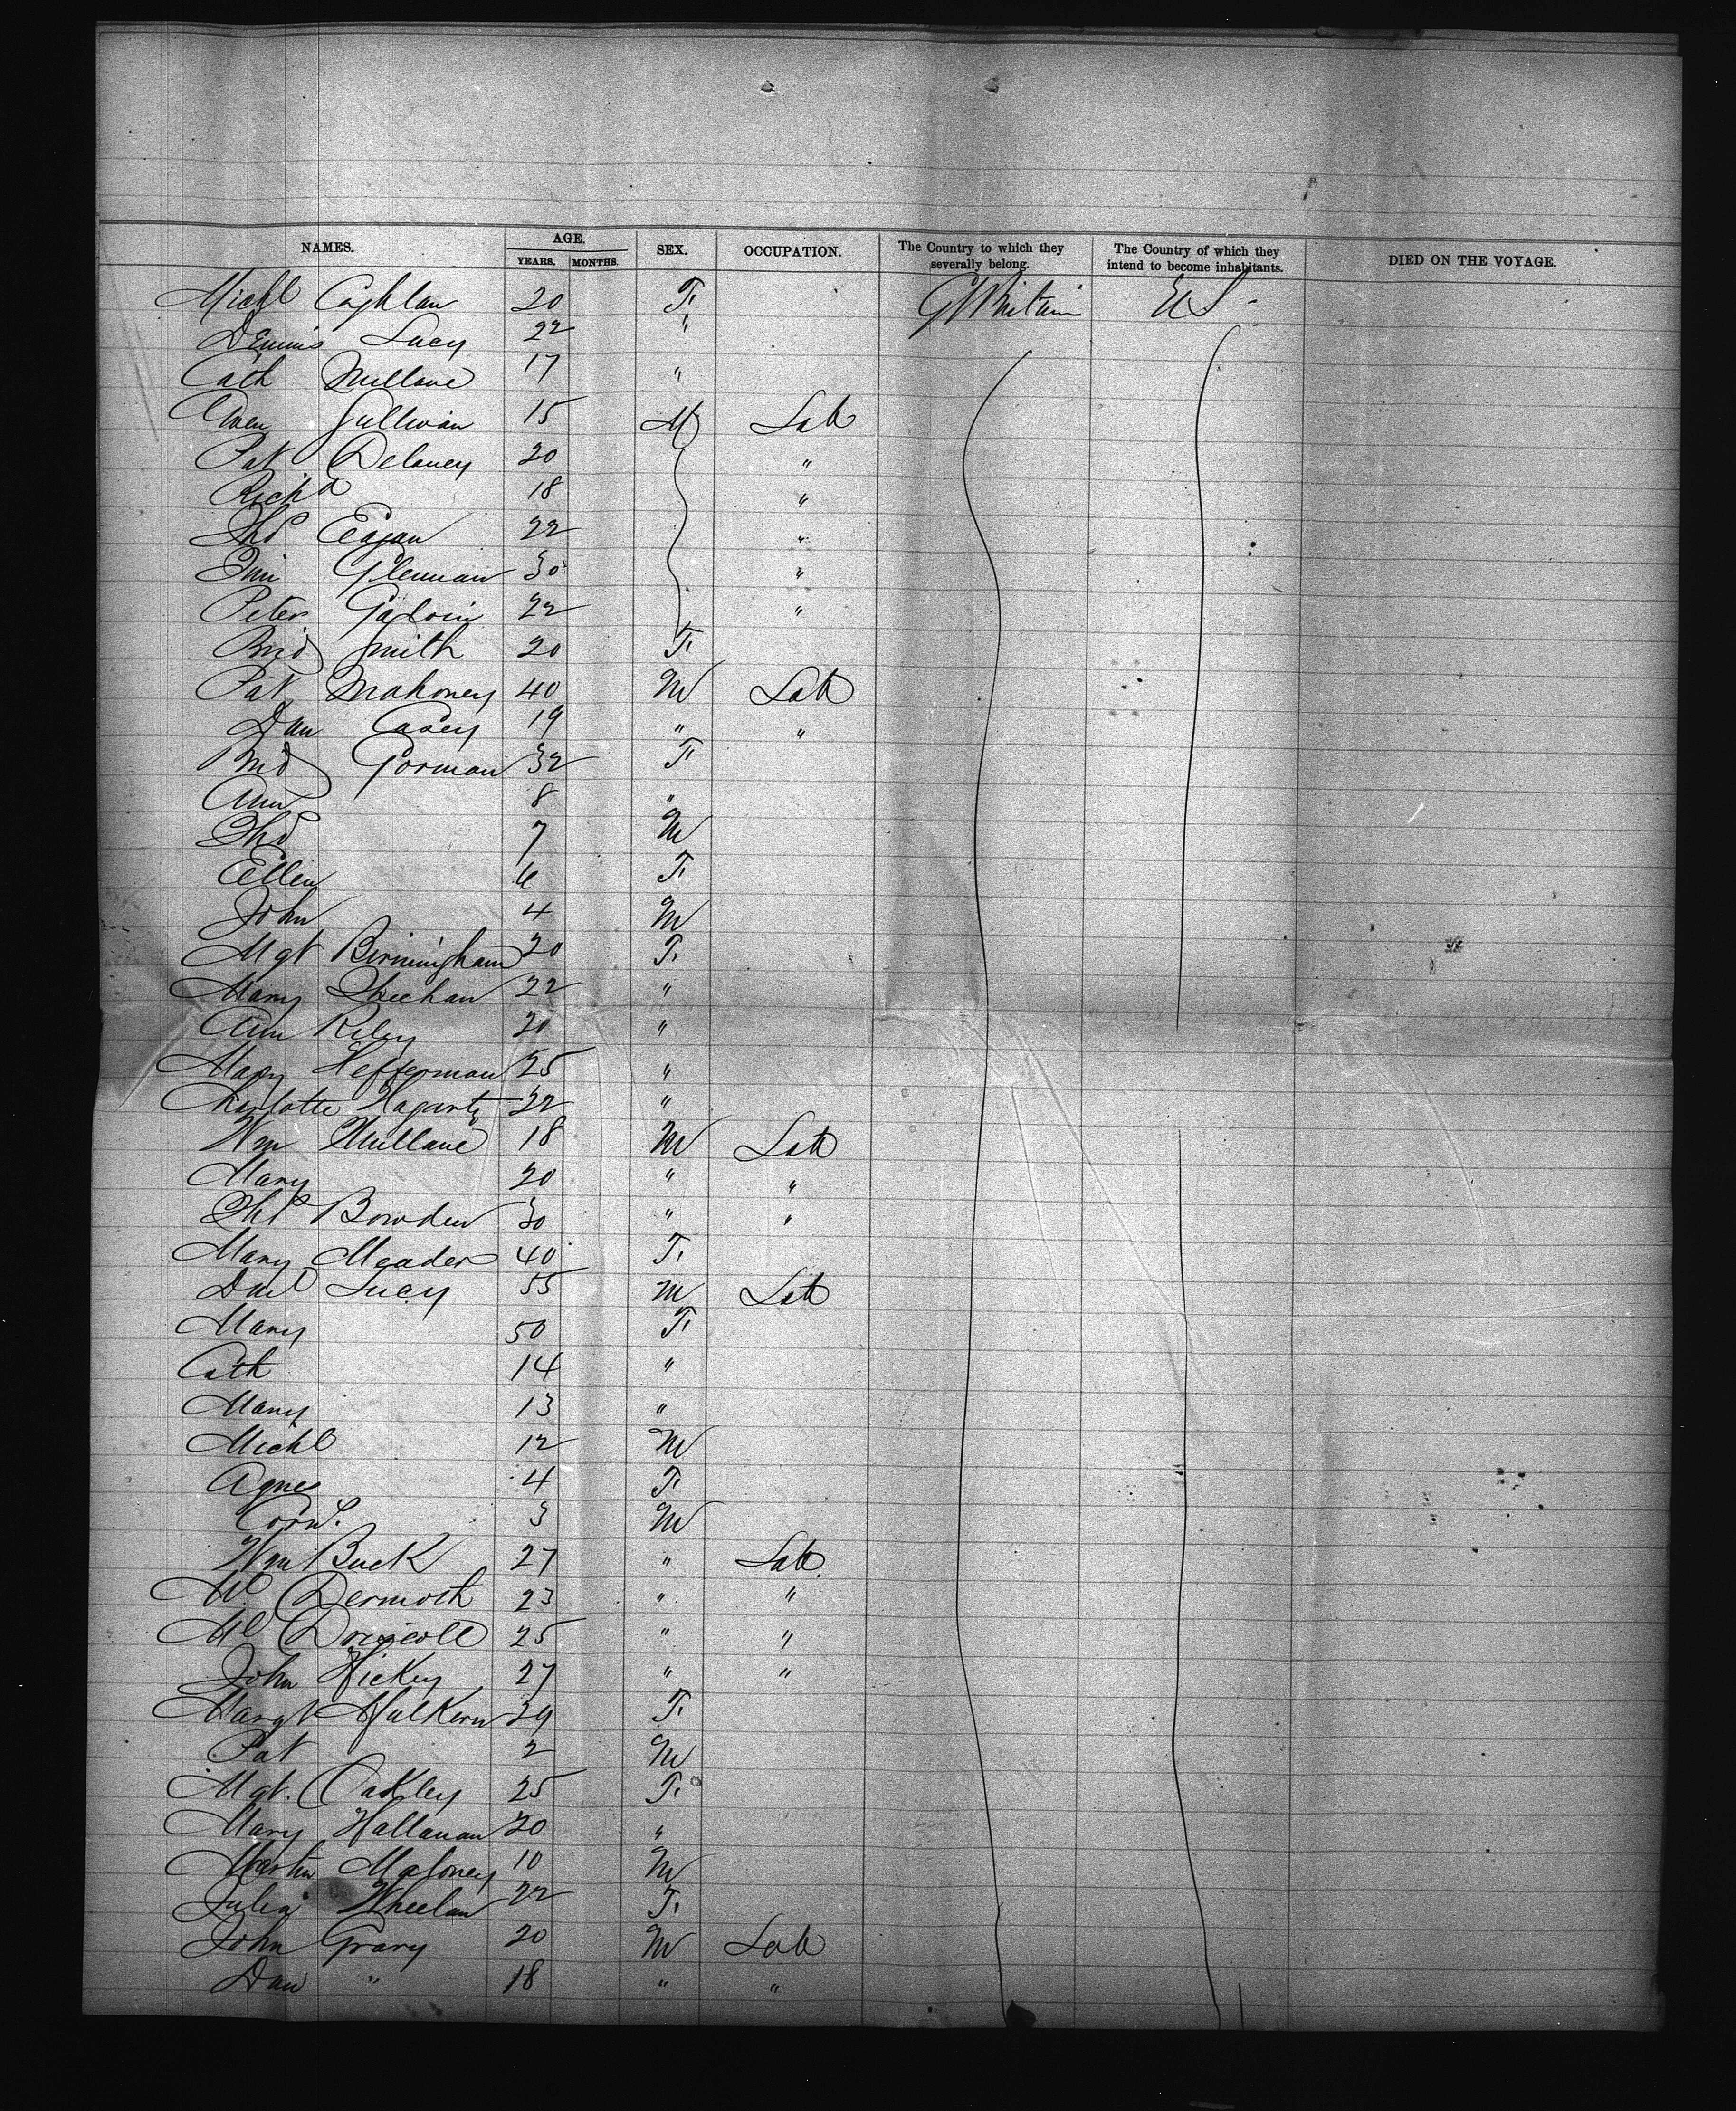 NAMES. AGE. YEARS. MONTHS. SEX. OCCUPATION. The Country to which they severally belong. The Country of which they intend to become inhabitants. DIED ON THE VOYAGE.
Michl Coghlan 20 F. Gt Britain U S -
Dennis Lucy 22 "
Cath Mullane 17 "
Owen Sullivan 15 M Lab
Pat Delaney 20 "
Richd 18 "
Thos Eagan 22 "
Glennan 30 "
Peter Galvin 22 "
Brid Smith 20 F.
Pat Mahoney 40 M Lab
Dan Casey 19 " "
Brid Gorman 32 F.
Ann 8 "
Thos 7 M
Ellen 6 F.
John 4 M
Mgt Birmingham 20 F.
Mary Sheehan 22 "
Ann Riley 20 "
Mary Hefferman 25 "
Charlotte Hagarty 22 "
Wm Mullane 18 M Lab
Mary 20 " "
Thos Bowden 30 " "
Mary Meader 40 F.
Danl Lucy 55 M Lab
Mary 50 F.
Cath 14 "
Mary 13 "
Michl 12 M
Agnes 4 F.
Cornl. 3 M
Wm Buck 27 " Lab
Ml Dermoth 23 " "
Ml Driscoll 25 " "
John Hickey 27 " "
Margt Mulkern 29 F.
Pat 2 M
Mgt. Oakley 25 F.
Mary Hallanan 20 "
Martin Maloney 10 M
Julia Wheelan 22 F.
John Grary 20 M Lab
Dan " 18 " "